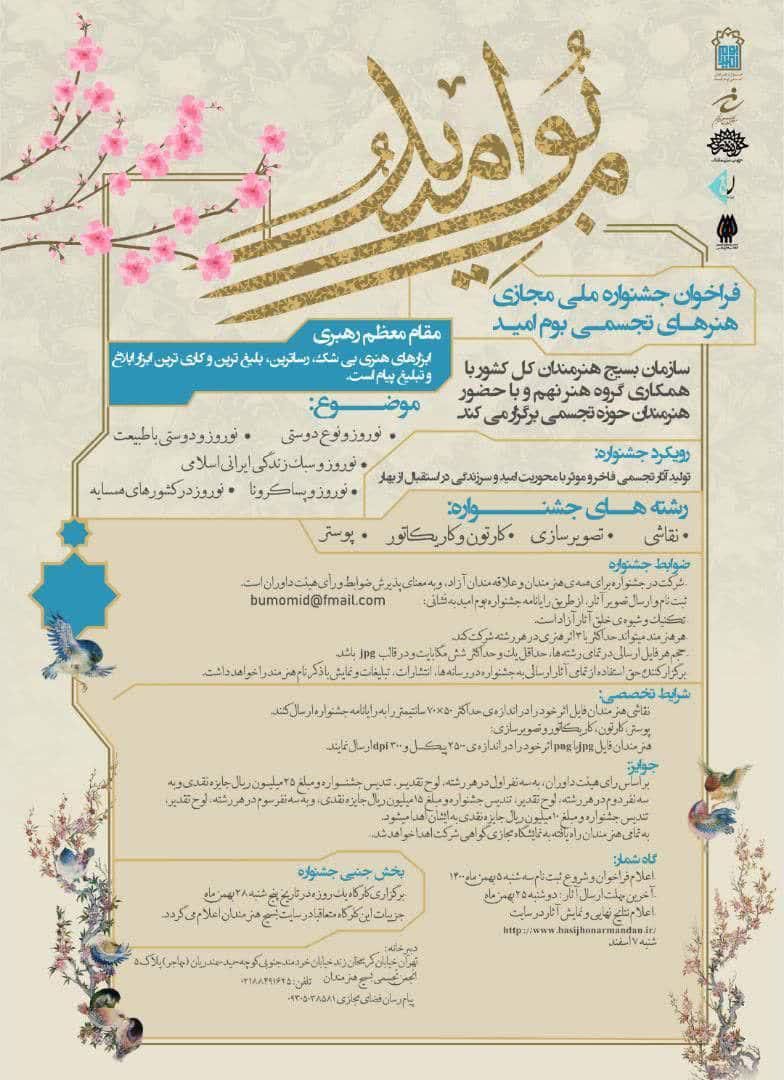 بوم امید
فراخوان جشنواره ملی مجازی
هنرهای تجسمی بوم امید
سازمان بسیج هنرمندان کل کشور با
همکاری گروه هنر نهم و با حضور
هنرمندان حوزه تجسمی برگزار می کند.
مقام معظم رهبری
ابزارهای هنری بی شک، رساترین، بلیغ ترین و کاری ترین ابزار ابلاغ
و تبلیغ پیام است.
موضوع:
• نوروز و نوع دوستی • نوروز و دوستی با طبیعت
• نوروز و سبک زندگی ایرانی اسلامی
• نوروز و پساکرونا • نوروز در کشورهای همسایه
رویکرد جشنواره:
تولید آثار تجسمی فاخر و موثر با محوریت امید و سرزندگی در استقبال از بهار
رشته های جشنواره:
• نقاشی • تصویرسازی • کارتون و کاریکاتور • پوستر
ضوابط جشنواره
.شرکت در جشنواره برای همه ی هنرمندان و علاقه مندان آزاد، و به معنای پذیرش ضوابط و رأی هیئت داوران است.
ثبت نام و ارسال تصویر آثار، از طریق رایانامه جشنواره بوم امید به نشانی: bumomid@fmail.com
.تکنیک و شیوه ی خلق آثار آزاد است.
.هر هنرمند میتواند حداکثر با ۳ اثر هنری در هر رشته شرکت کند.
.حجم هر فایل ارسالی در تمامی رشته ها، حداقل یک و حداکثر شش مگابایت و در قالب jpg باشد.
برگزارکننده حق استفاده از تمامی آثار ارسالی به جشنواره در رسانه ها، انتشارات، تبلیغات و نمایش با ذکر نام هنرمند را خواهد داشت.
شرایط تخصصی:
نقاشی: هنرمندان فایل اثر خود را در اندازه ی حداکثر ۵۰×۷۰ سانتیمتر را به رایانامه جشنواره ارسال کنند.
پوستر، کارتون، کاریکاتور و تصویرسازی:
هنرمندان فایل jpg یا png اثر خود را در اندازه ی ۲۵۰۰ پیکسل و ۳۰۰ dpi ارسال نمایند.
جوایز:
بر اساس رای هیئت داوران، به سه نفر اول در هر رشته، لوح تقدیر، تندیس جشنواره و مبلغ ۲۵ میلیون ریال جایزه نقدی و به
سه نفر دوم در هر رشته، لوح تقدیر، تندیس جشنواره و مبلغ ۱۵ میلیون ریال جایزه نقدی، و به سه نفر سوم در هر رشته، لوح تقدیر،
تندیس جشنواره و مبلغ ۱۰ میلیون ریال جایزه نقدی به ایشان اهدا میشود.
به تمامی هنرمندان راه یافته به نمایشگاه مجازی گواهی شرکت اهدا خواهد شد.
گاه شمار:
اعلام فراخوان و شروع ثبت نام سه شنبه ۵ بهمن ماه ۱۴۰۰
.آخرین مهلت ارسال آثار: دوشنبه ۲۵ بهمن ماه
.اعلام نتایج نهایی و نمایش آثار در سایت
http://www.basijhonarmandan.ir/
شنبه ۷ اسفند
بخش جنبی جشنواره
برگزاری کارگاه یک روزه در تاریخ پنج شنبه ۲۸ بهمن ماه
جزییات این کارگاه متعاقبا در سایت بسیج هنرمندان اعلام می گردد.
دبیرخانه:
تهران خیابان کریمخان زند خیابان خردمند جنوبی کوچه حمید صمدریان (مهاجر) پلاک ۵
انجمن تجسمی بسیج هنرمندان تلفن: ۰۲۱۸۸۴۹۱۶۲۵
پیام رسان فضای مجازی ۰۹۳۰۵۰۳۸۵۸۱